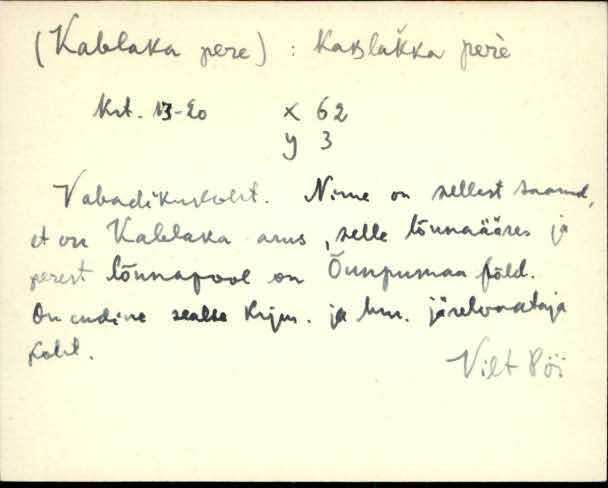 (Kablaka pere) : kaʙlakka pere
Krt. 13-20 x 62
y 3
Vabadikukoht. Nime on sellest saand,
et on Kablaka arus, selle lõunaääres ja
perest lõunapool on Õunpumaa põld.
On endine sealse Kirjm. ja hm. järelvaataja
koht.
Vilt